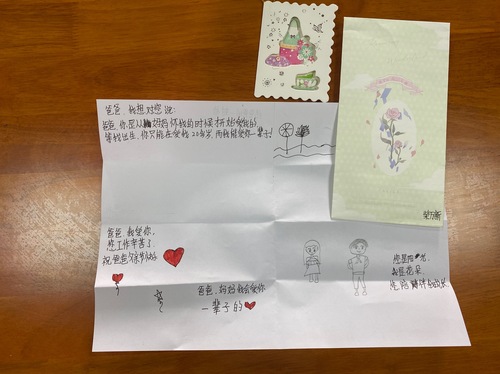 爸爸，我想对您说：
爸爸，你是从妈妈怀我的时候开始爱我的
等我出生，你只能在爱我20多岁，而我能爱你一辈子！
爸爸，我爱你，
您工作辛苦了
祝爸爸父亲节快乐
爸爸，妈妈我会爱你
一辈子的
您是阳光，
我是花朵，